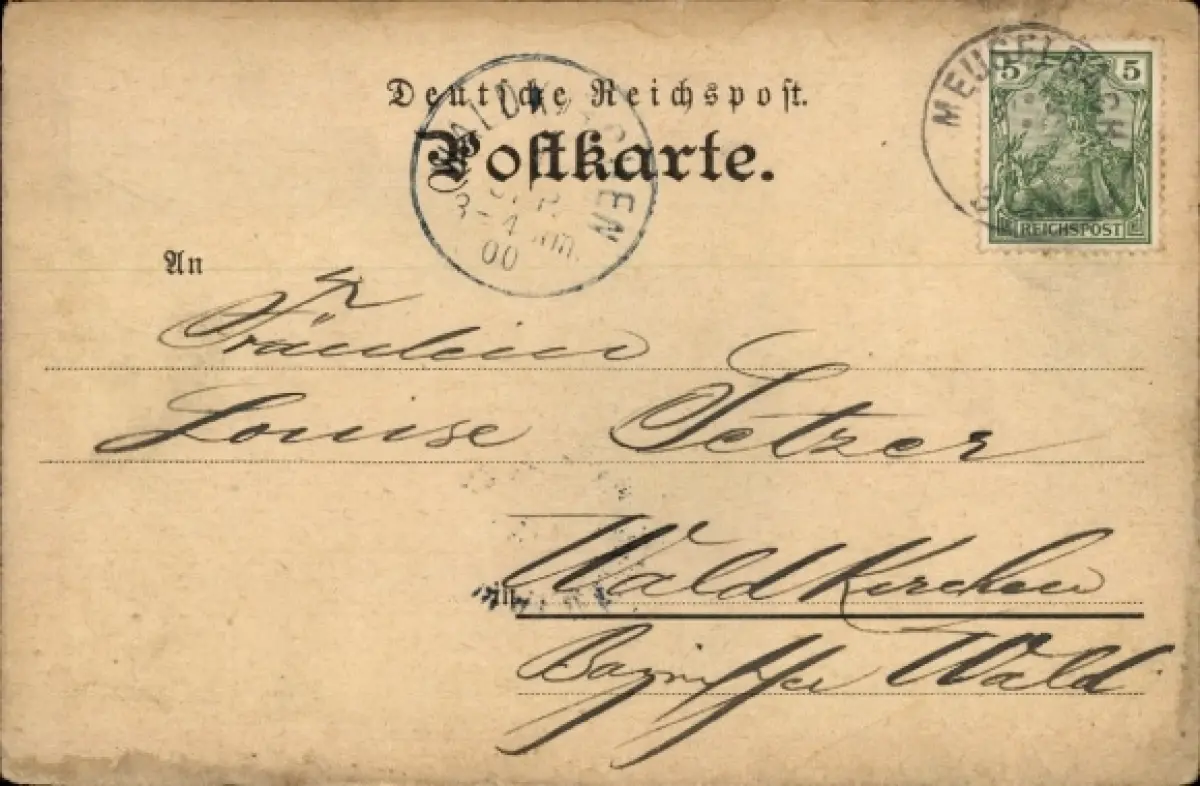 Deutsche Reichspost.
Postkarte.
WALDKIRCHEN
3-4 Nm.
00
MEUSELBACH
5 5
REICHSPOST
An
Fräulein
Louise Setzer
in Waldkirchen
Bayrischer Wald